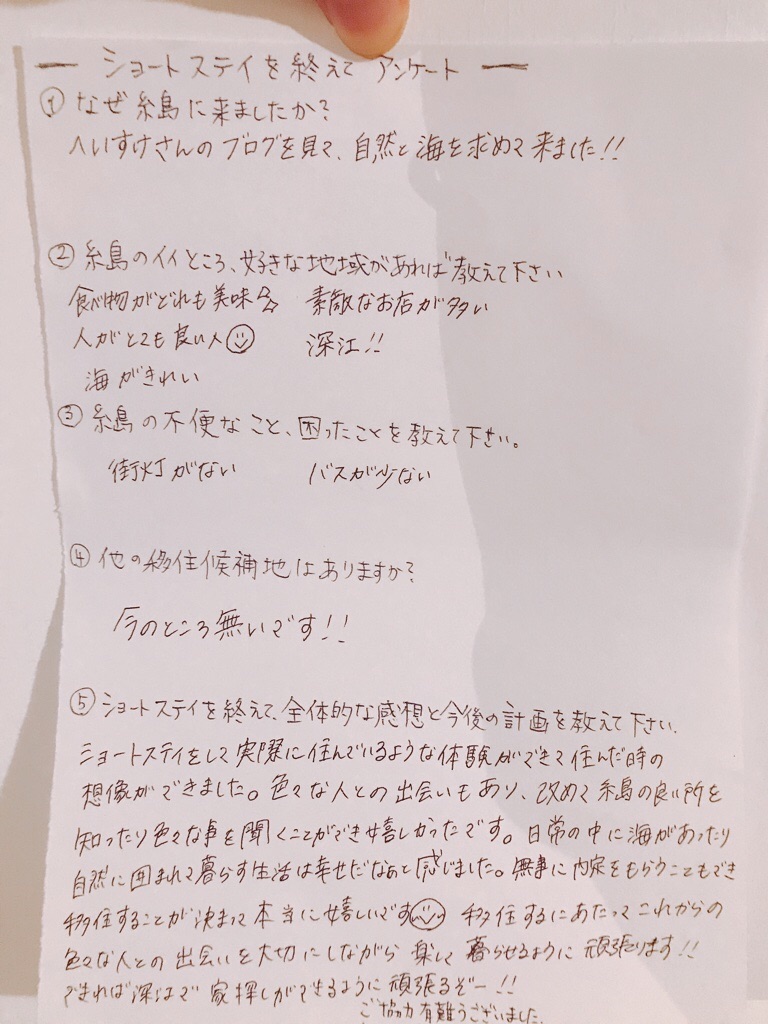 ー ショートステイを終えて アンケート ー
① なぜ糸島に来ましたか?
へいすけさんのブログを見て、自然と海を求めて来ました!!
② 糸島のイイところ、好きな地域があれば教えて下さい
食べ物がどれも美味 素敵なお店が多い
人がとても良い人 深江!!
海がきれい
③ 糸島の不便なこと、困ったことを教えて下さい。
街灯がない バスが少ない
④ 他の移住候補地はありますか?
今のところ無いです!!
⑤ ショートステイを終えて、全体的な感想と今後の計画を教えて下さい.
ショートステイをして実際に住んでいるような体験ができて住んだ時の
想像ができました。色々な人との出会いもあり、改めて糸島の良い所を
知ったり色々な事を聞くことができ嬉しかったです。日常の中に海があったり
自然に囲まれて暮らす生活は幸せだなあと感じました。無事に内定をもらうこともでき
移住することが決まって本当に嬉しいです 移住するにあたってこれからの
色々な人との出会いを大切にしながら 楽しく暮らせるように頑張ります!!
できれば深江で 家探しができるように頑張るぞー!!
ご協力有難うございました.